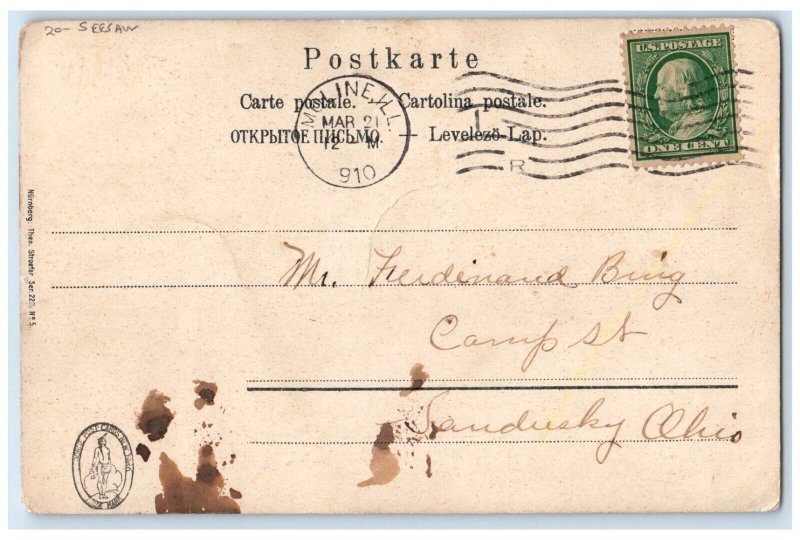 20- SEESAW
Postkarte
U.S. POSTAGE
ONE CENT
Carte postale. Cartolina postale.
ОТКРЫТОЕ ПИСЬМО. — Levelezö-Lap.
MOLINE, ILL.
MAR 21
12 M
910
R
Nürnberg. Theo. Stroefer Ser. 220. Nº 5.
Mr. Ferdinand Bing
Camp St
Sandusky Ohio
POST CARDS
TRADE MARK